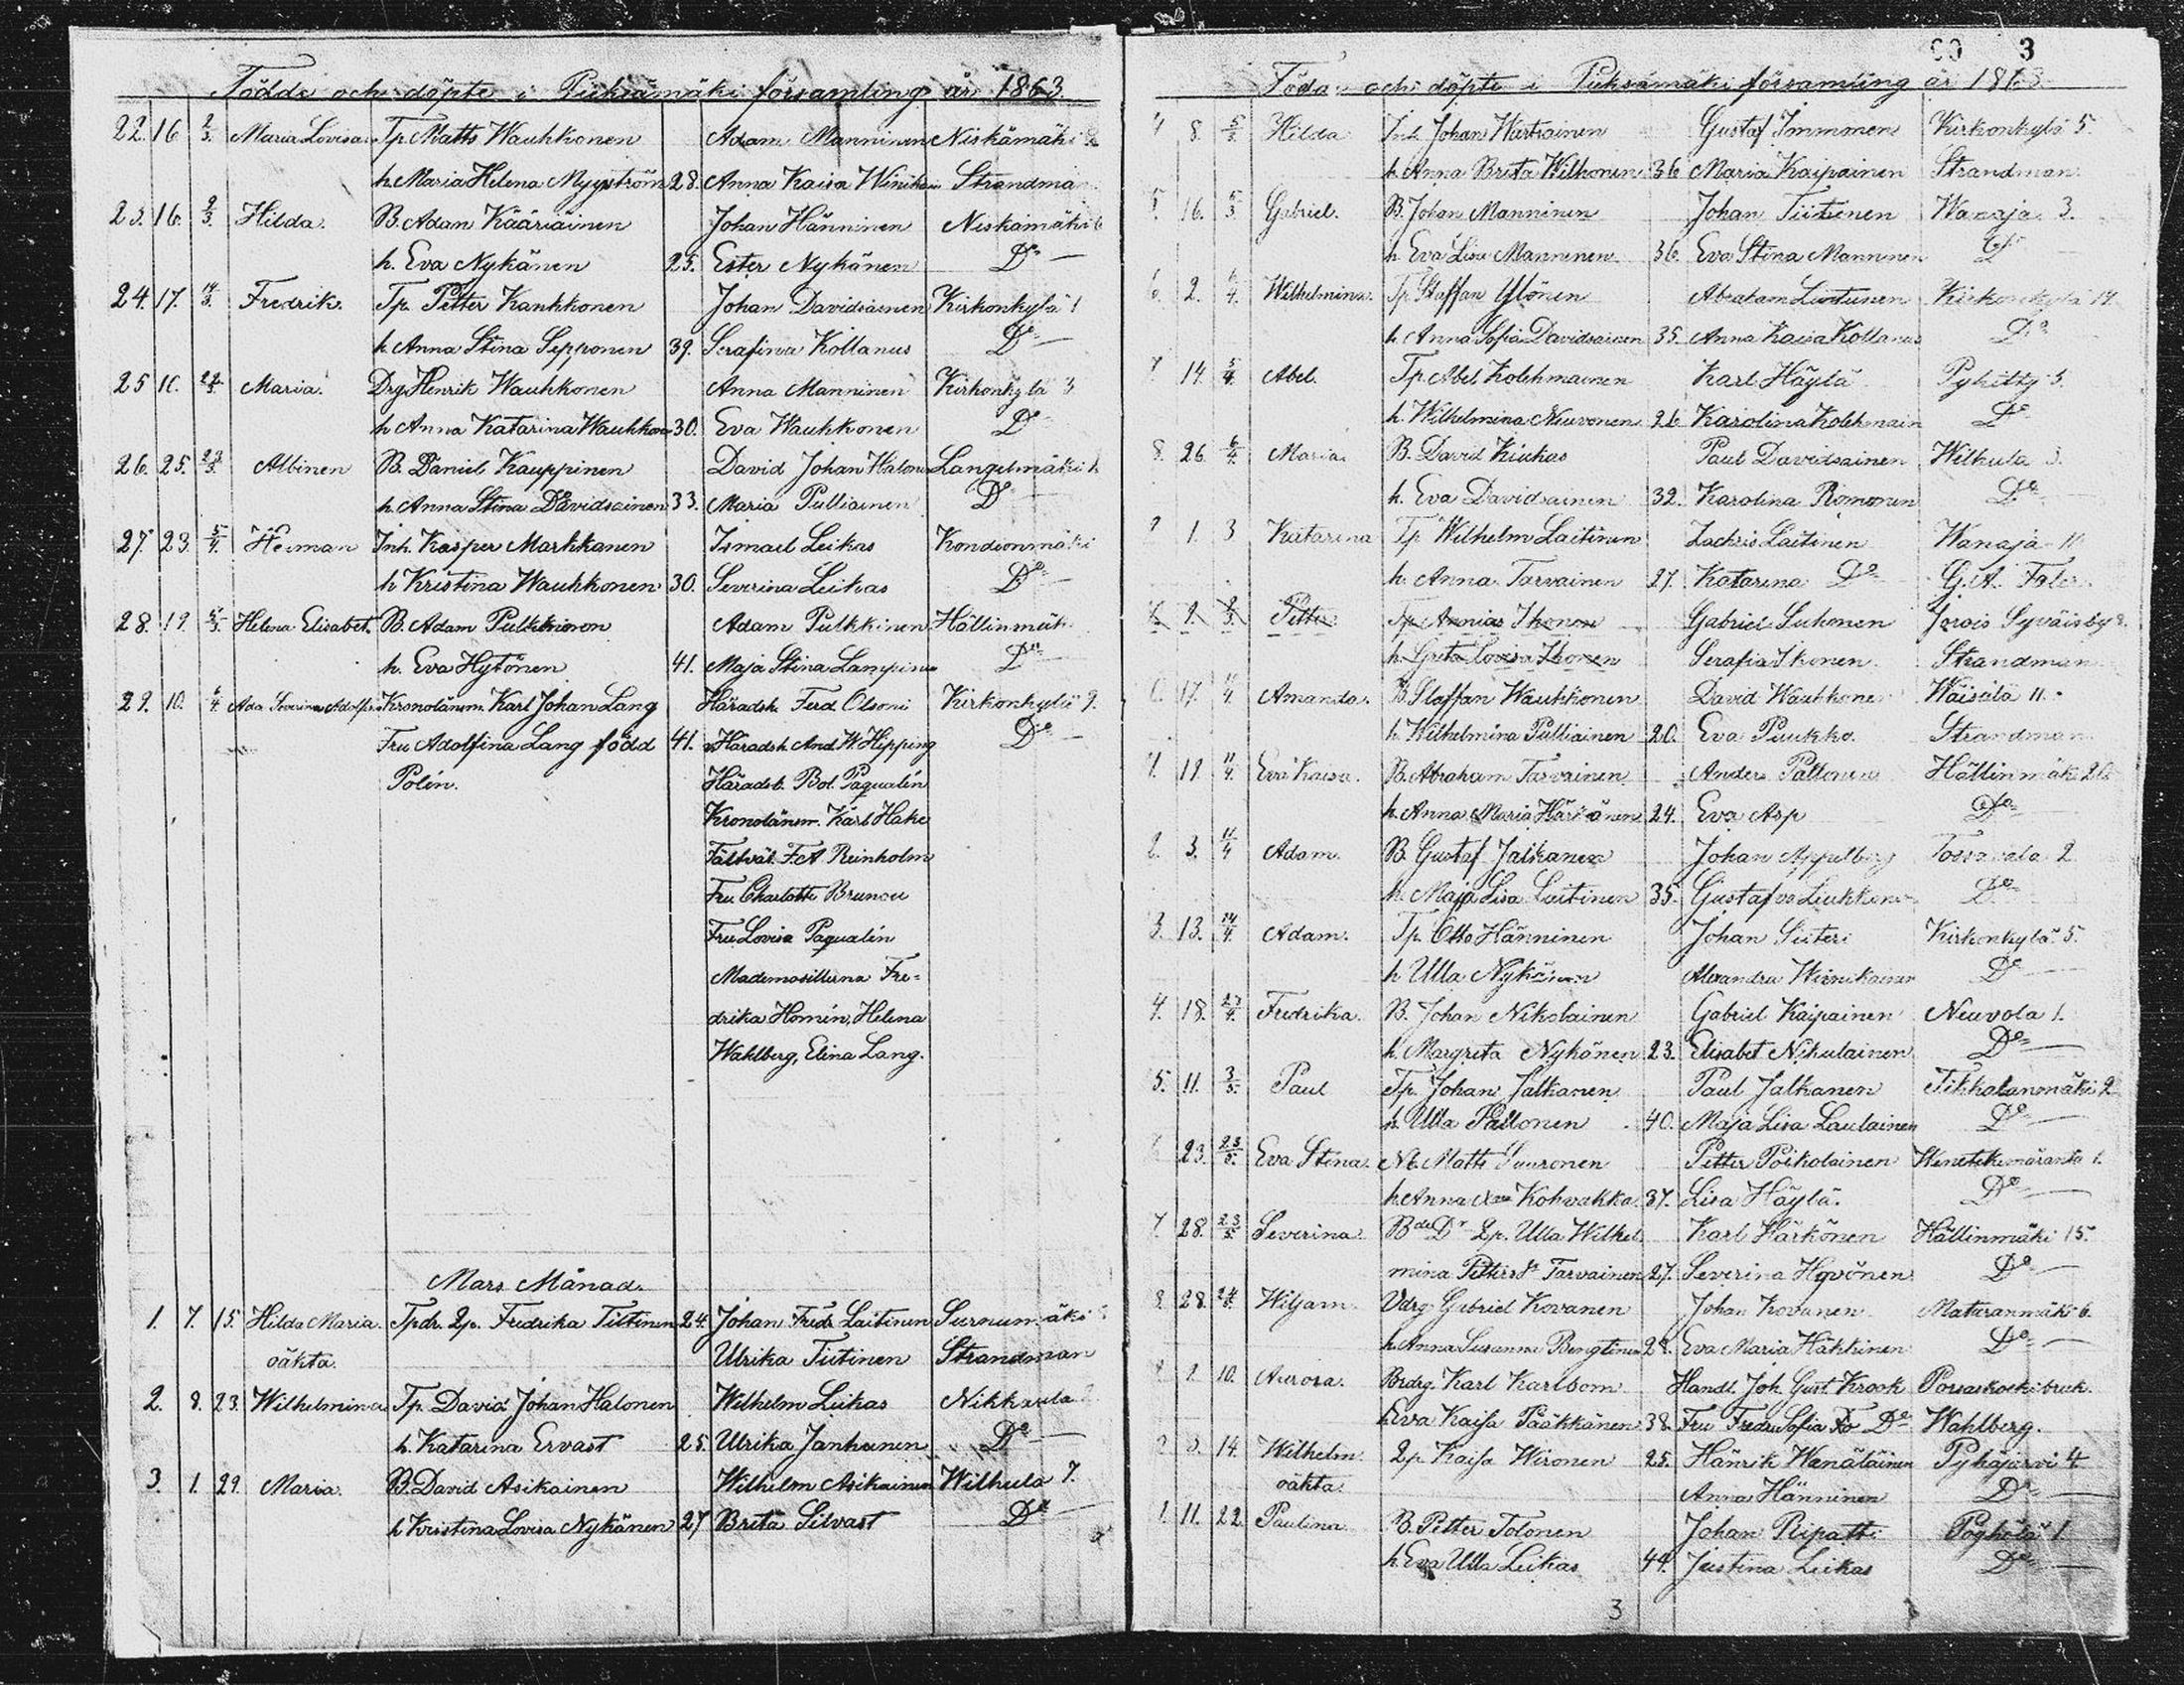 Födde och döpte i Pieksämäki församling år 1863.
22. 16 2/3. Maria Lovisa. Tp. Matts Wauhkonen Adam Manninen Niskämäki
h. Maria Helena Mygström 28. Anna Kaisa Strandman
23. 16. 2/3. Hilda. B. Adam Kääriäinen Johan Hänninen Niskämäki 6
h. Eva Nykänen 25. Ester Nykänen Do
24. 17. Fredrik. Tp. Petter Kauhkonen Johan Davidsainen Kirkonkylä 1
h. Anna Stina Sepponen 39. Serafina Kollanus Do
25 10. Maria. Drg Henrik Wauhkonen Anna Manninen Kirkonkylä 3
h Anna Katarina Wauhkonen 30. Eva Wauhkonen Do
26. 25. Albinen B. Daniel Kauppinen David Johan Halonen Langelmäki
h. Anna Stina Davidsainen 33. Maria Pulliainen Do
27. 23. 5/4. Herman Inh. Kasper Markkanen Ismael Leikas Kondionmäki
h Kristina Wauhkonen 30. Severina Leikas Do
28. 19. Helena Elisabet. B. Adam Pulkkinen Adam Pulkkinen Hällinmäki
h. Eva Hytönen 41. Maja Stina Lampinen Do
29. 10. 6/4. Ada Severina Adolfina Kronolänsm. Karl Johan Lang Häradsh. Ferd. Olsoni Kirkonkylä 9.
Fru Adolfina Lang född 41. Häradsh. And. W. Hipping Do
Polén. Häradsh. Bol. Paqualén
Kronolänsm. Karl Hake
Fältväb. F. A. Reinholm
Fru Charlotte Brunou
Fru Lovisa Paqualén
Mademoisellerna Fre-
drika Homén, Helena
Wahlberg, Elina Lang.
Mars Månad.
1. 7. 15. Hilda Maria. Tpdr. Lp. Fredrika Tiitinen 24. Johan Fredr. Laitinen Surnumäki
oäkta. Ulrika Tiitinen Strandman
2. 8. 23. Wilhelmina Tp. David Johan Halonen Wilhelm Leikas Nikkaula
h. Katarina Ervast 25. Ulrika Janhunen Do
3. 1. 29. Maria. B. David Asikainen Wilhelm Asikainen Wilhula 7.
h Kristina Lovisa Nykänen 27 Brita Silvast Do
3
Föda och döpte i Pieksämäki församling år 1863
4 8. 5/3. Hilda Inh. Johan Wartiainen Gustaf Immonen Kirkonkylä 5.
h Anna Brita Wilhonen 36 Maria Kaipainen Strandman
5. 16. 5/3 Gabriel. B. Johan Manninen Johan Tiitinen Wanaja 3.
h Eva Lisa Manninen 36. Eva Stina Manninen Do
6. 2. Wilhelmina. Tp. Staffan Ylönen Abraham Kirkonkylä 14.
h Anna Sofia Davidsainen 35. Anna Kaisa Kollanus Do
7 14. 5/4. Abel. Tp. Abel Kolehmainen Karl Häylä Pyhitty 3.
h. Wilhelmina Neuvonen 26 Karolina Kolehmain Do
8. 26 6/4. Maria B. David Kiukas Paul Davidsainen Wilhula 3.
h. Eva Davidsainen 32. Karolina Romonen Do
1. 3 Katarina Tp Wilhelm Laitinen Zachris Laitinen Wanaja 11
h. Anna Tarvainen 27. Katarina Do G. A.
Petter Tp. Annias Ihonen Gabriel Suhonen Jorois Syväisby
h. Greta Lovisa Ihonen Serafia Ikonen Strandman
17. Amanda. B. Staffan Wauhkonen David Wauhkone Wäisälä 11.
h Wilhelmina Pulliainen 20. Eva Puukko Strandman
19. 11/4. Eva Kaisa. B. Abraham Tarvainen Anders Pällonen Hällinmäki 20
h. Anna Maria Härkönen 24. Eva Asp Do
2. 3. 11/4 Adam. B. Gustaf Jalkanen Johan Appelberg 2
h. Maja Lisa Laitinen 35. Gustafva Liukkonen Do
3. 13. 14/4. Adam. Tp. Otto Hänninen Johan Siiteri Kirkonkylä 5.
h Ulla Nykänen Alexandra Wiinikainen Do
4. 18. 27/4. Fredrika. B. Johan Nikolainen Gabriel Kaipainen Neuvola 1.
h. Margreta Nykänen 23. Elisabet Nikulainen Do
5. 11. 3/5. Paul Tp. Johan Jalkanen Paul Jalkanen Tikkalanmäki 2
h. Ulla Pällonen 40. Maja Lisa Laulainen Do
23. 23/5. Eva Stina. Matts Suuronen Petter Poikolainen Wenetekemäranta 1.
h. Anna Kohvakka 37. Lisa Häylä. Do
7. 28. 23/5. Severina Bde Dr Lp. Ulla Wilhel Karl Härkönen Hällinmäki 15.
mina Petters Dr Tarvainen 27. Severina Do
8. 28. Wiljam. Vdrg Gabriel Kovanen Johan Kovanen Mataranmäki 6.
h. Anna Susanna Bengtinen 28. Eva Maria Häkkinen Do
10. Aurora. Brdrg. Karl Karlbom Handl. Joh. Gust. Krook Porsaskoski bruk.
h Eva Kaisa Pääkkänen 38. Fru Fredr Sofia Do Wahlberg.
14 Wilhelm Lp Kaisa Wironen 25. Hänrik Wänäläinen Pyhäjärvi 4
oäkta. Anna Hänninen Do
11. 22 Paulina B. Petter Tolonen Johan Ripatti 1
h. Eva Ulla Leikas 44. Justina Leikas Do
3